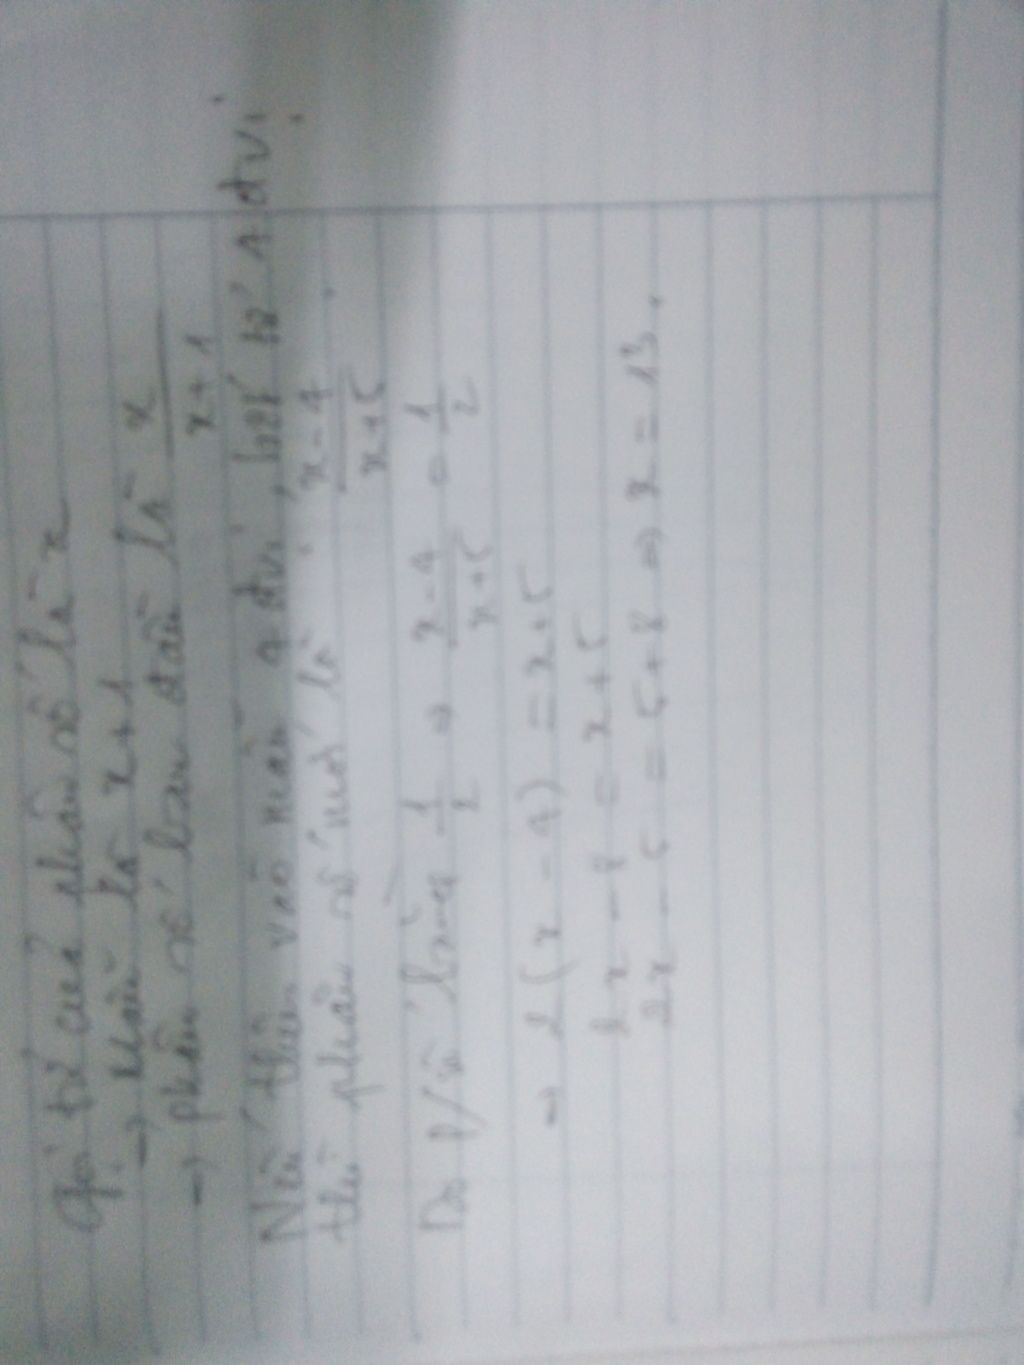 Gọi tử của phân số là x
→ Mẫu là x+1
→ phân số ban đầu là x/(x+1)
Nếu thêm vào mẫu 4 đvị, bớt tử 4 đvị
thì phân số mới là : (x-4)/(x+5) .
Do p/số bằng 1/2 ⇒ (x-4)/(x+5) = 1/2
→ 2(x-4) = x+5
2x - 8 = x+5
2x - = 5+8 ⇒ x = 13.